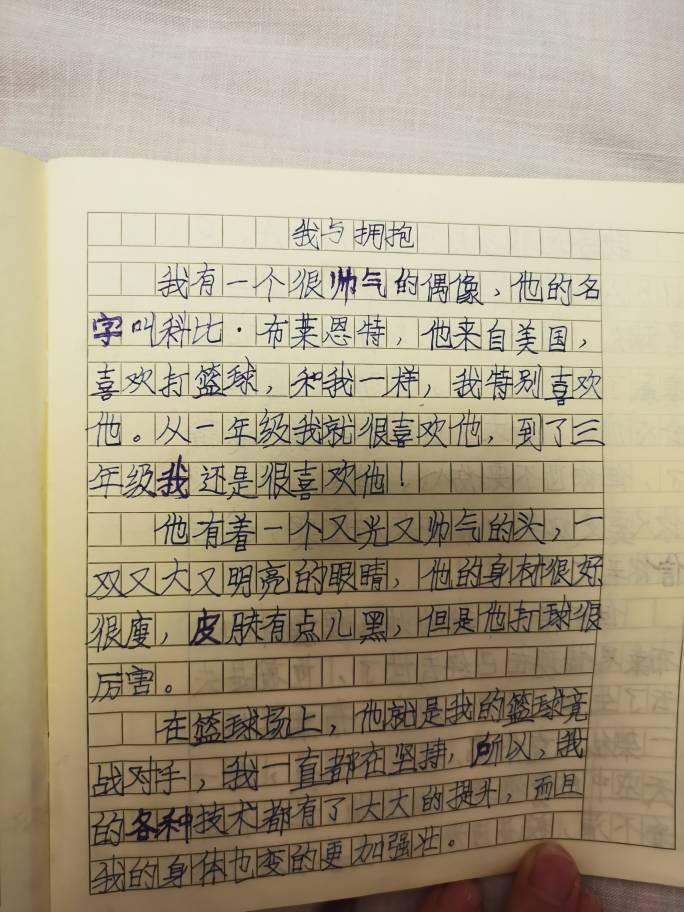 我与拥抱
我有一个很帅气的偶像，他的名
字叫科比·布莱恩特，他来自美国，
喜欢打篮球，和我一样，我特别喜欢
他。从一年级我就很喜欢他，到了三
年级我还是很喜欢他！
他有着一个又光又帅气的头，一
双又大又明亮的眼睛，他的身材很好
很瘦，皮肤有点儿黑，但是他打球很
厉害。
在篮球场上，他就是我的篮球竞
战对手，我一直都在坚持，所以，我
的各种技术都有了大大的提升，而且
我的身体也变的更加强壮。